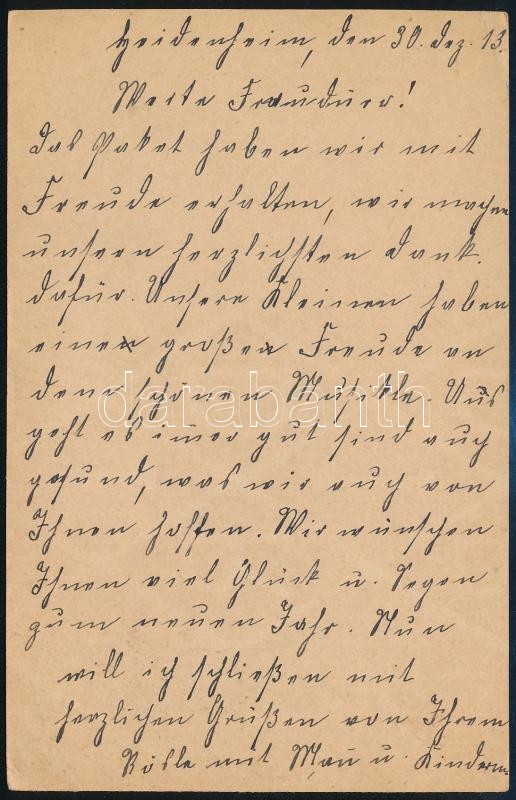 Heidenheim, den 30. Dez. 13.
Werte Frauduer!
Das Paket haben wir mit
Freude erhalten, wir machen
unsern herzlichsten Dank.
dafür. Unsere Kleinen haben
einen großen Freude an
dem schönen Musikle. Uns
geht es imer gut sind auch
gesund, was wir auch von
Ihnen hoffen. Wir wünschen
Ihnen viel Glück u. Segen
zum neuen Jahr. Nun
will ich schließen mit
herzlichen Grüßen von Ihrem
Rösle mit Man u. Kindern.
darabanth.com